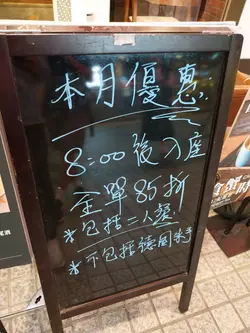 本月優惠
8:00後入座
全單85折
*包括二人餐
*不包括德國豬手